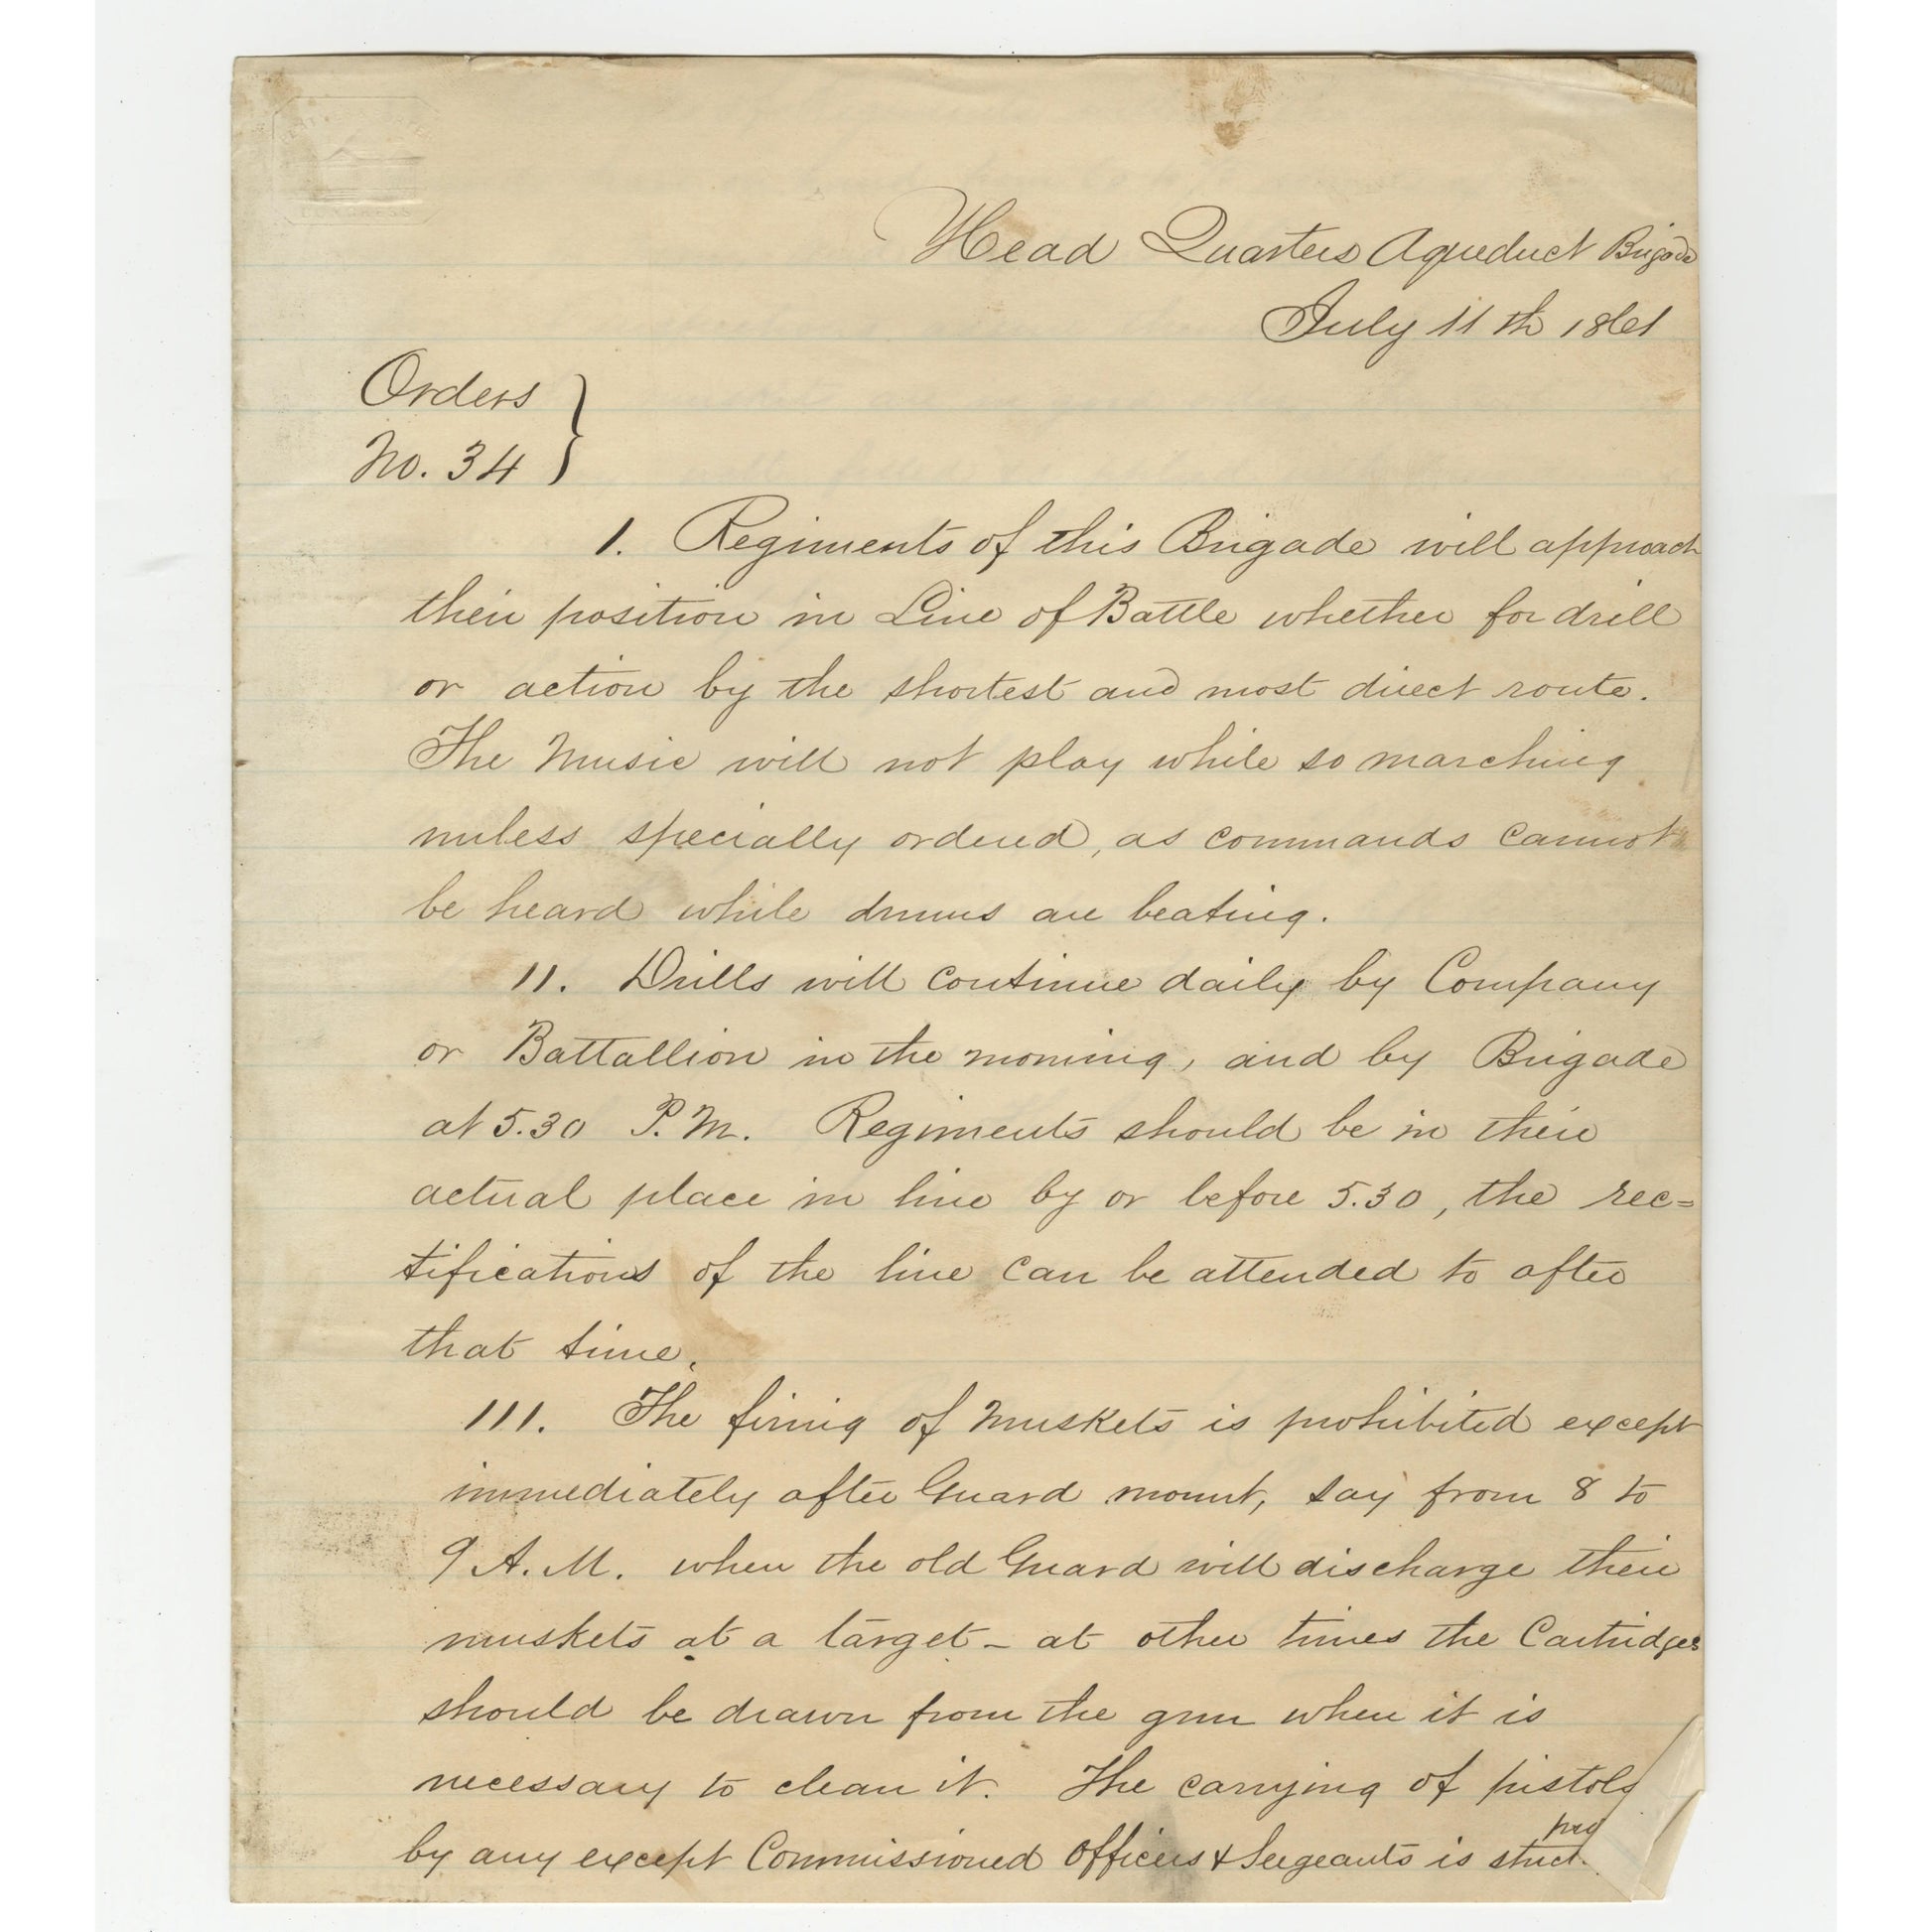 Head Quarters Aqueduct Brigade
July 11th 1861
Orders
No. 34
1. Regiments of this Brigade will approach
their position in Line of Battle whether for drill
or action by the shortest and most direct route.
The Music will not play while so marching
unless specially ordered, as commands cannot
be heard while drums are beating.
11. Drills will continue daily by Company
or Battallion in the morning, and by Brigade
at 5.30 P.M. Regiments should be in their
actual place in line by or before 5.30, the rec=
tifications of the line can be attended to after
that time.
111. The firing of muskets is prohibited except
immediately after Guard mount, say from 8 to
9 A.M. when the old Guard will discharge their
muskets at a target - at other times the Cartridges
should be drawn from the gun when it is
necessary to clean it. The carrying of pistols
by any except Commissioned Officers & Sergeants is